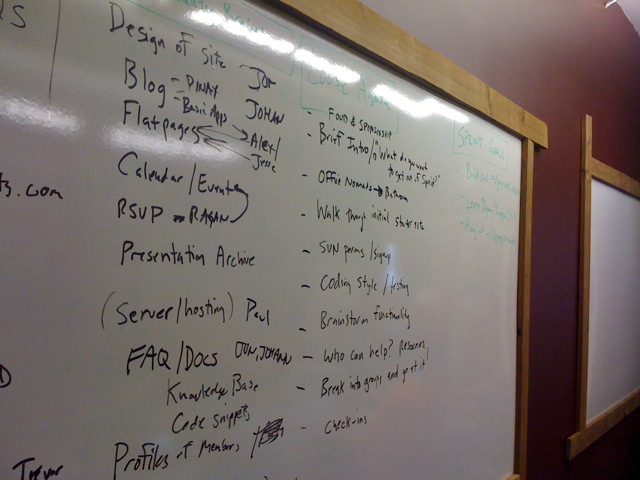 Design of Site - JOF
Blog - PINAX
- Basic Apps JOHAN
Flatpages Alex/
Jesse
Calendar/Events
RSVP - RAGAN
Presentation Archive
(Server/hosting) Paul
FAQ/DOCS JUN, JOHANN
Knowledge Base
Code snippets
Profiles of Members
ts.com
Trevor
- FOOD & SPONSORSHIP
- Brief Intro/"What do you want
to get out of Sprint?"
- Office Nomads → Bathroom
- Walk through initial starter site
- SVN perms/signup
- Coding style/testing
- Brainstorm functionality
- Who can help? Resources
- Break into groups and go at it!
- Check-ins
SPRINT GOALS
- Learn Django